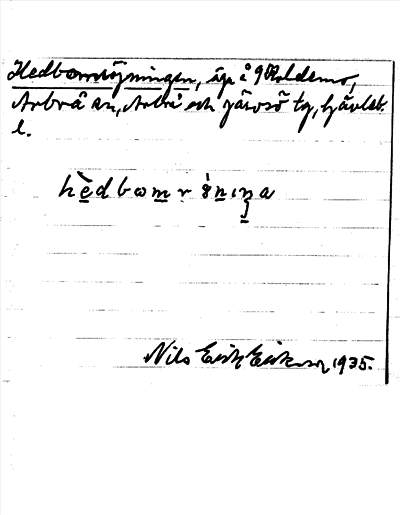 Hedbomröjningen, äga å
Arbrå sn, Arbrå och Järvsö tg, Gävleb.
l.
hèdbωmrö̀nıŋa
Nils Erik Eriksson 1935.